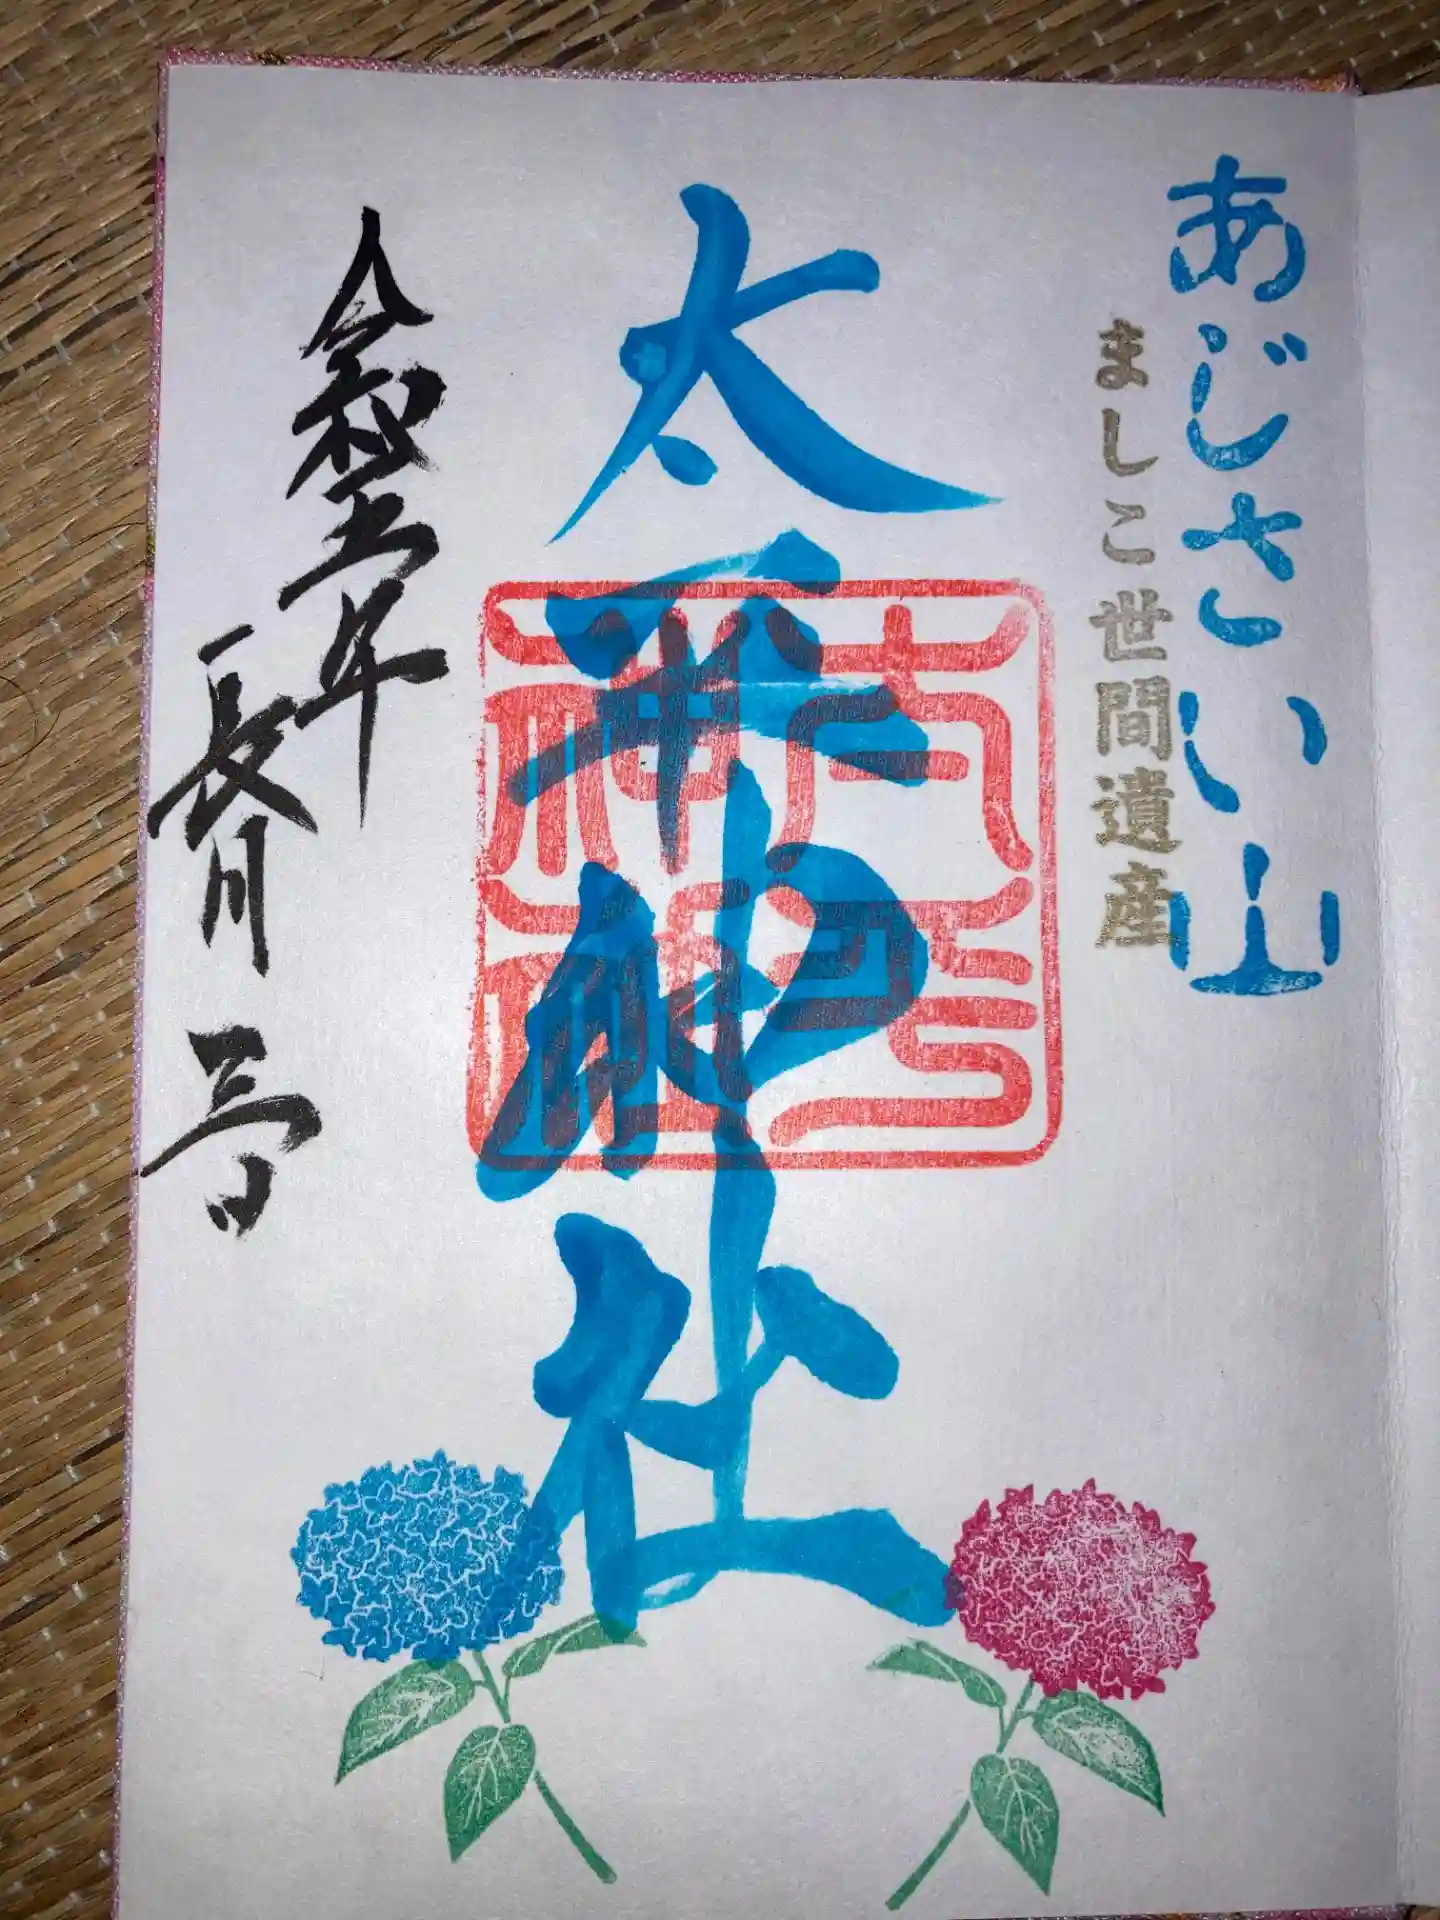 あじさい山
ましこ世間遺産
太平神社
太平神社
令和五年
長月三日